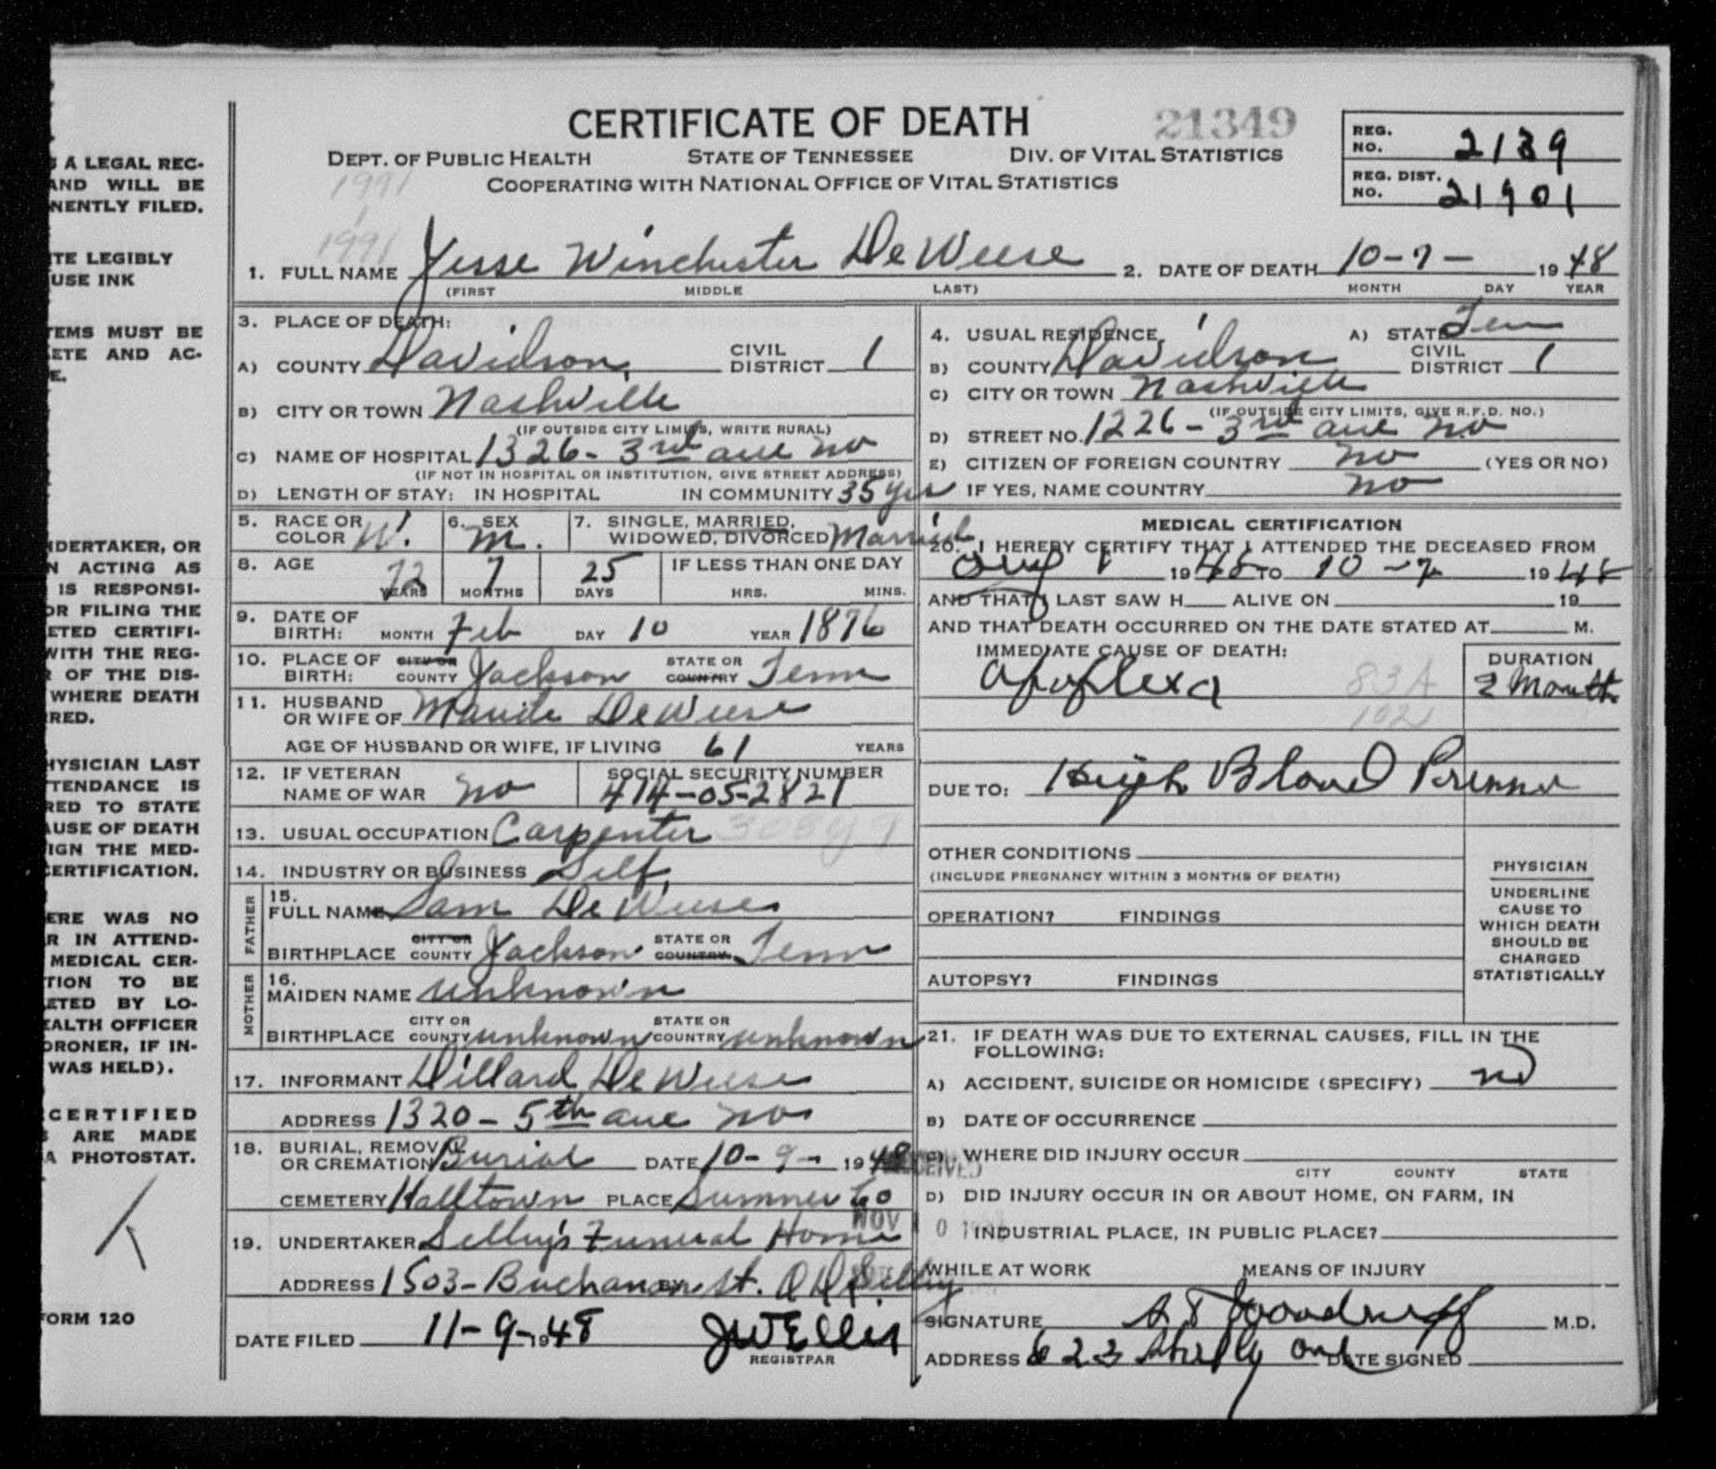 S A LEGAL REC-
AND WILL BE
NENTLY FILED.
TE LEGIBLY
USE INK
TEMS MUST BE
ETE AND AC-
E.
NDERTAKER, OR
N ACTING AS
IS RESPONSI-
OR FILING THE
ETED CERTIFI-
WITH THE REG-
R OF THE DIS-
WHERE DEATH
RED.
HYSICIAN LAST
TTENDANCE IS
RED TO STATE
AUSE OF DEATH
IGN THE MED-
CERTIFICATION.
ERE WAS NO
R IN ATTEND-
MEDICAL CER-
TION TO BE
ETED BY LO-
EALTH OFFICER
ORONER, IF IN-
WAS HELD).
CERTIFIED
S ARE MADE
A PHOTOSTAT.
FORM 120
CERTIFICATE OF DEATH 21349
DEPT. OF PUBLIC HEALTH STATE OF TENNESSEE DIV. OF VITAL STATISTICS
COOPERATING WITH NATIONAL OFFICE OF VITAL STATISTICS
REG. NO. 2139
REG. DIST. NO. 21901
1991
1991
1. FULL NAME Jesse Winchester DeWeese 2. DATE OF DEATH 10-7- 1948
(FIRST MIDDLE LAST) MONTH DAY YEAR
3. PLACE OF DEATH:
A) COUNTY Davidson, CIVIL DISTRICT 1
B) CITY OR TOWN Nashville
(IF OUTSIDE CITY LIMITS, WRITE RURAL)
C) NAME OF HOSPITAL 1326- 3rd ave no
(IF NOT IN HOSPITAL OR INSTITUTION, GIVE STREET ADDRESS)
D) LENGTH OF STAY: IN HOSPITAL IN COMMUNITY 35 yrs
4. USUAL RESIDENCE, A) STATE Ten
B) COUNTY Davidson CIVIL DISTRICT 1
C) CITY OR TOWN Nashville
(IF OUTSIDE CITY LIMITS, GIVE R.F.D. NO.)
D) STREET NO. 1226- 3rd ave no
E) CITIZEN OF FOREIGN COUNTRY no (YES OR NO)
IF YES, NAME COUNTRY no
5. RACE OR COLOR W. 6. SEX M. 7. SINGLE, MARRIED, WIDOWED, DIVORCED Married
8. AGE 72 YEARS 7 MONTHS 25 DAYS IF LESS THAN ONE DAY HRS. MINS.
9. DATE OF BIRTH: MONTH Feb DAY 10 YEAR 1876
10. PLACE OF BIRTH: CITY OR COUNTY Jackson STATE OR COUNTRY Tenn
11. HUSBAND OR WIFE OF Maude DeWeese
AGE OF HUSBAND OR WIFE, IF LIVING 61 YEARS
12. IF VETERAN NAME OF WAR no SOCIAL SECURITY NUMBER 414-05-2821
13. USUAL OCCUPATION Carpenter
14. INDUSTRY OR BUSINESS Self
FATHER
15. FULL NAME Sam DeWeese
BIRTHPLACE CITY OR COUNTY Jackson STATE OR COUNTRY Tenn
MOTHER
16. MAIDEN NAME unknown
BIRTHPLACE CITY OR COUNTY unknown STATE OR COUNTRY unknown
17. INFORMANT Dillard DeWeese
ADDRESS 1320- 5th ave no
18. BURIAL, REMOVAL OR CREMATION Burial DATE 10-9- 1948
CEMETERY Halltown PLACE Sumner Co
19. UNDERTAKER Selby's Funeral Home
ADDRESS 1503- Buchanan St. BY
DATE FILED 11-9-1948 JW Ellis
REGISTRAR
RECEIVED
NOV 10
MEDICAL CERTIFICATION
20. I HEREBY CERTIFY THAT I ATTENDED THE DECEASED FROM
Aug 1 1948 TO 10-7 1948
AND THAT I LAST SAW H ALIVE ON 19
AND THAT DEATH OCCURRED ON THE DATE STATED AT M.
IMMEDIATE CAUSE OF DEATH: DURATION
Apoplexa 83A 2 Months
102
DUE TO: High Blood Pressure
OTHER CONDITIONS
(INCLUDE PREGNANCY WITHIN 3 MONTHS OF DEATH)
OPERATION? FINDINGS
AUTOPSY? FINDINGS
PHYSICIAN
UNDERLINE
CAUSE TO
WHICH DEATH
SHOULD BE
CHARGED
STATISTICALLY
21. IF DEATH WAS DUE TO EXTERNAL CAUSES, FILL IN THE
FOLLOWING:
A) ACCIDENT, SUICIDE OR HOMICIDE (SPECIFY) no
B) DATE OF OCCURRENCE
C) WHERE DID INJURY OCCUR
CITY COUNTY STATE
D) DID INJURY OCCUR IN OR ABOUT HOME, ON FARM, IN
INDUSTRIAL PLACE, IN PUBLIC PLACE?
WHILE AT WORK MEANS OF INJURY
SIGNATURE Woodruff M.D.
ADDRESS 623 DATE SIGNED